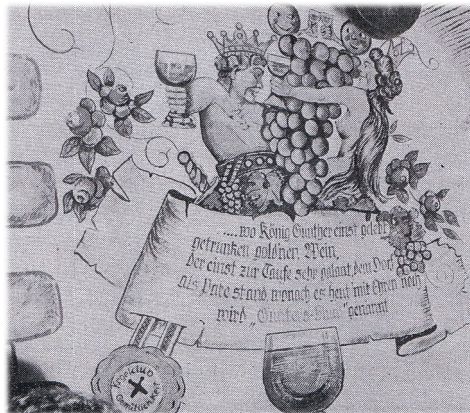 ....wo König Gunther einst gelebt
getrunken goldnen Wein,
der einst zur Taufe sehr galant dem Dorf
als Pate stand wonach es heut mit Ehren
wird "Gunters-Blum" genannt
Kegelclub
Gemütlichkeit